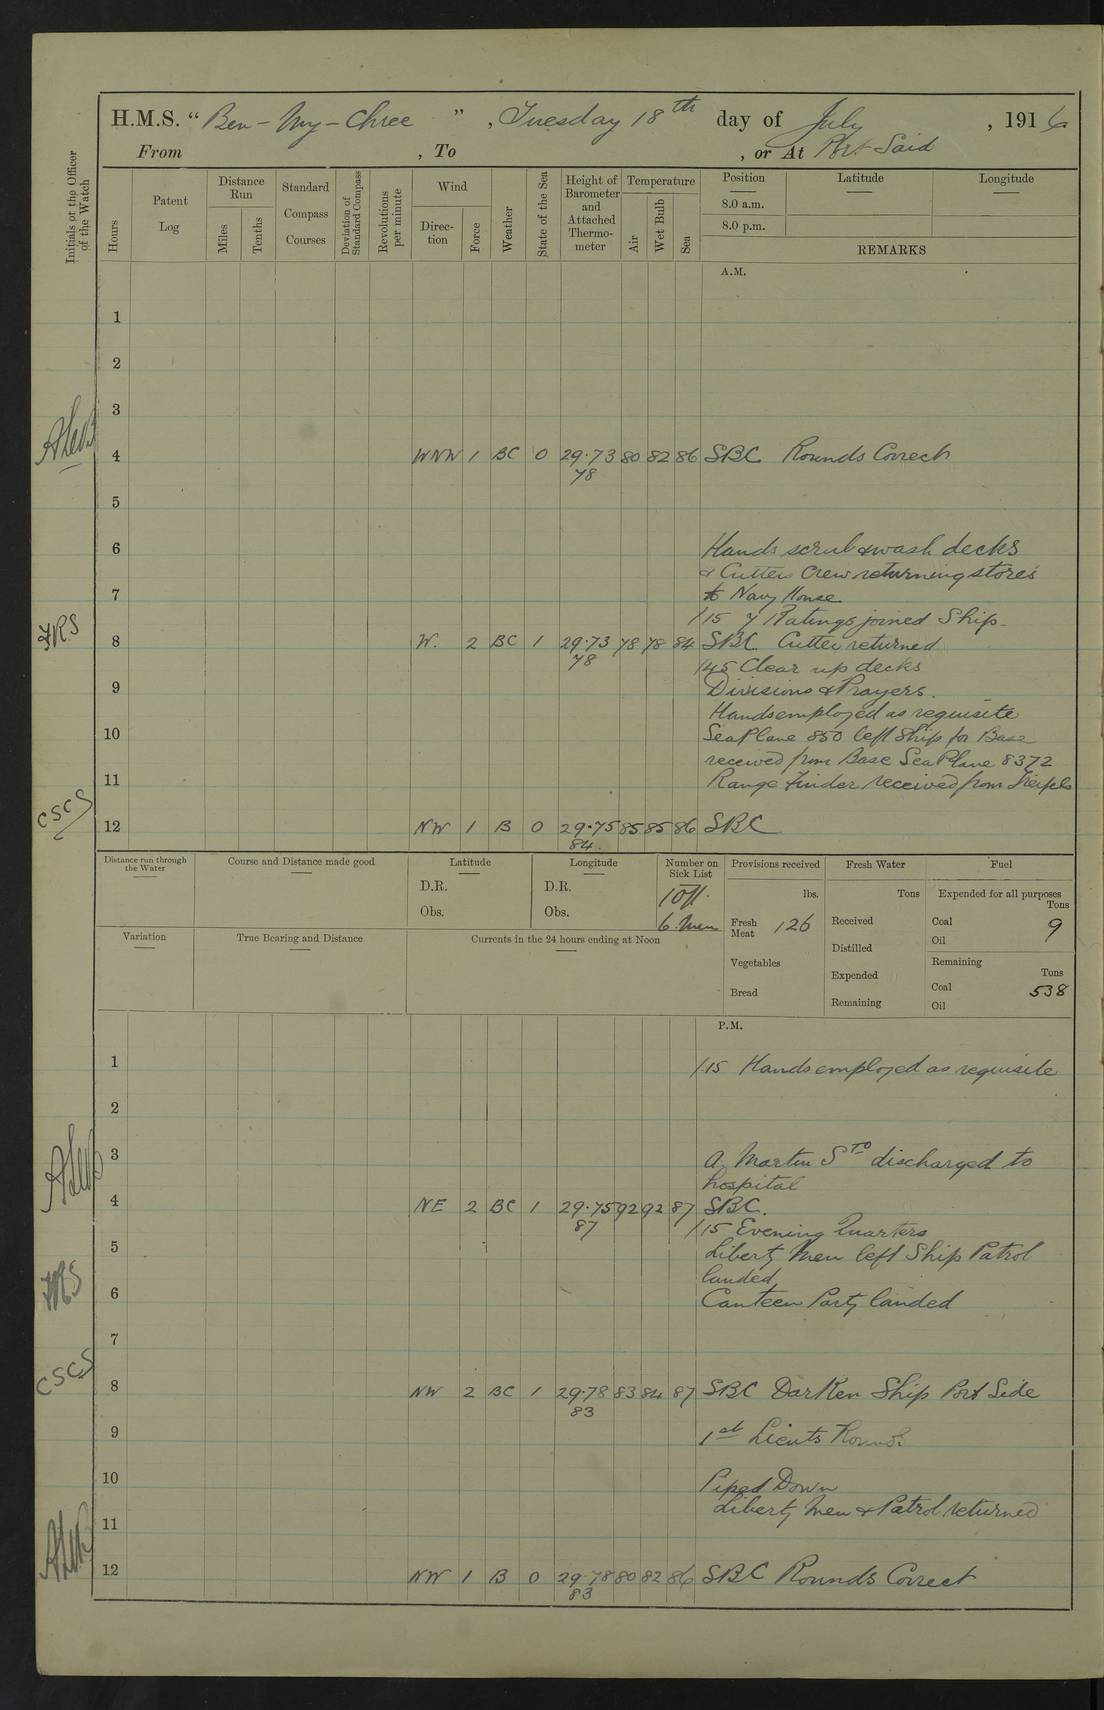 H.M.S. "Ben-My-Chree", Tuesday 18th day of July, 1916
From , To , or At Port Said
Initials of the Officer of the Watch
Hours
Patent Log
Distance Run
Miles
Tenths
Standard Compass Courses
Deviation of Standard Compass
Revolutions per minute
Wind
Direction
Force
Weather
State of the Sea
Height of Barometer and Attached Thermometer
Temperature
Air
Wet Bulb
Sea
Position Latitude Longitude
8.0 a.m.
8.0 p.m.
REMARKS
A.M.
1
2
3
4 WNW 1 BC 0 29.73 80 82 86 SBC Rounds Correct
78
5
6 Hands scrub & wash decks
& Cutters Crew returning stores
7 to Navy House
/15 7 Ratings joined Ship
FRS 8 W. 2 BC 1 29.73 78 78 84 SBC Cutter returned
78 /45 Clear up decks
9 Divisions & Prayers.
Hands employed as requisite
10 Sea Plane 850 left Ship for Base
received from Base Sea Plane 8372
11 Range Finder received from
CSCS 12 NW 1 B 0 29.75 85 85 86 SBC
84
Distance run through the Water
Course and Distance made good
Latitude
D.R.
Obs.
Longitude
D.R.
Obs.
Number on Sick List
1 Off.
6 Men
Provisions received
lbs.
Fresh Meat 126
Vegetables
Bread
Fresh Water
Tons
Received
Distilled
Expended
Remaining
Fuel
Expended for all purposes
Tons
Coal 9
Oil
Remaining
Tons
Coal 538
Oil
Variation
True Bearing and Distance
Currents in the 24 hours ending at Noon
P.M.
1 /15 Hands employed as requisite
2
3 A. Martin Sto discharged to
hospital
4 NE 2 BC 1 29.75 92 92 87 SBC.
87 /15 Evening Quarters
5 Liberty Men left Ship Patrol
landed
6 Canteen Party landed
FRS
7
CSCS 8 NW 2 BC 1 29.78 83 84 87 SBC Darken Ship Port Side
83
9 1st Lieuts Rounds
10 Piped Down
Liberty Men & Patrol returned
11
12 NW 1 B 0 29.78 80 82 86 SBC Rounds Correct
83